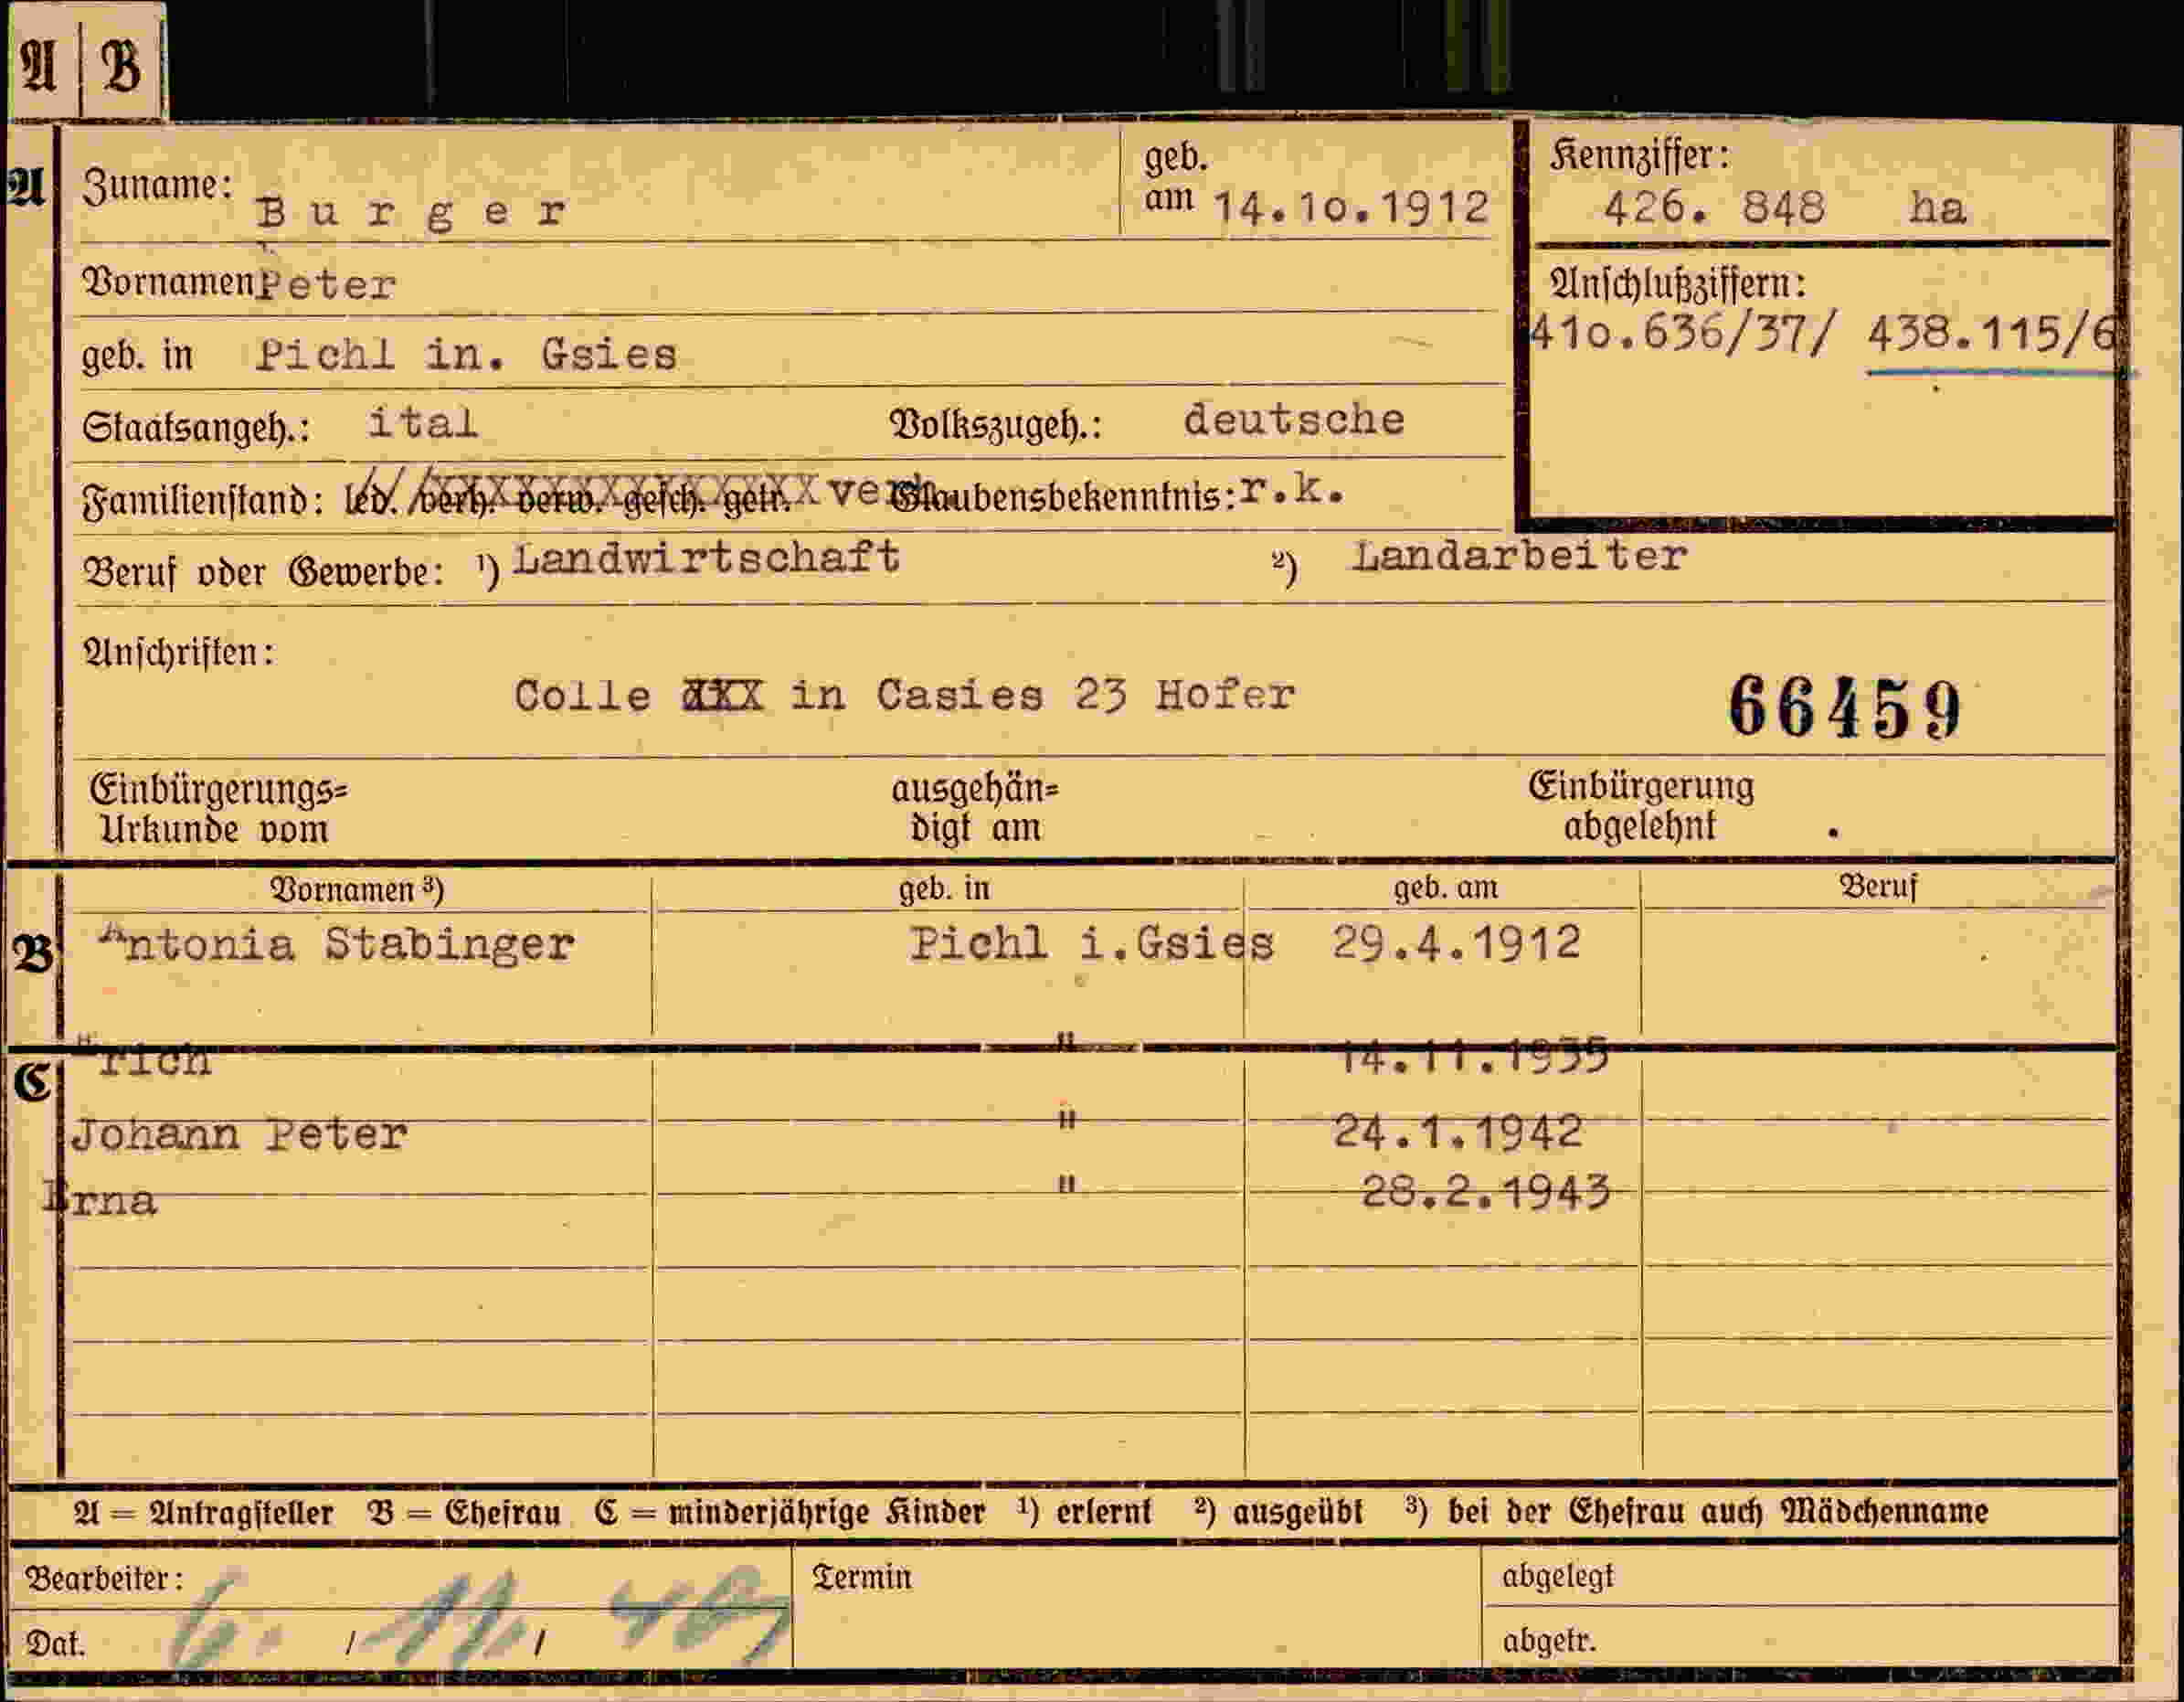 A B
A Zuname: Burger geb. am 14.10.1912 Kennziffer: 426. 848 ha
Vornamen Peter Anschlußziffern:
410.636/37/ 438.115/6
geb. in Pichl in. Gsies
Staatsangeh.: ital Volkszugeh.: deutsche
Familienstand: led. verh. verw. gesch. getr. verh Glaubensbekenntnis: r.k.
Beruf oder Gewerbe: 1) Landwirtschaft 2) Landarbeiter
Anschriften:
Colle in Casies 23 Hofer 66459
Einbürgerungs= ausgehän= Einbürgerung
Urkunde vom digt am abgelehnt
Vornamen 3) geb. in geb. am Beruf
B Antonia Stabinger Pichl i.Gsies 29.4.1912
C rich " 14.11.1935
Johann Peter " 24.1.1942
Erna " 28.2.1943
A = Antragsteller B = Ehefrau C = minderjährige Kinder 1) erlernt 2) ausgeübt 3) bei der Ehefrau auch Mädchenname
Bearbeiter: Termin abgelegt
Dat. 6. / 11. / abgetr.